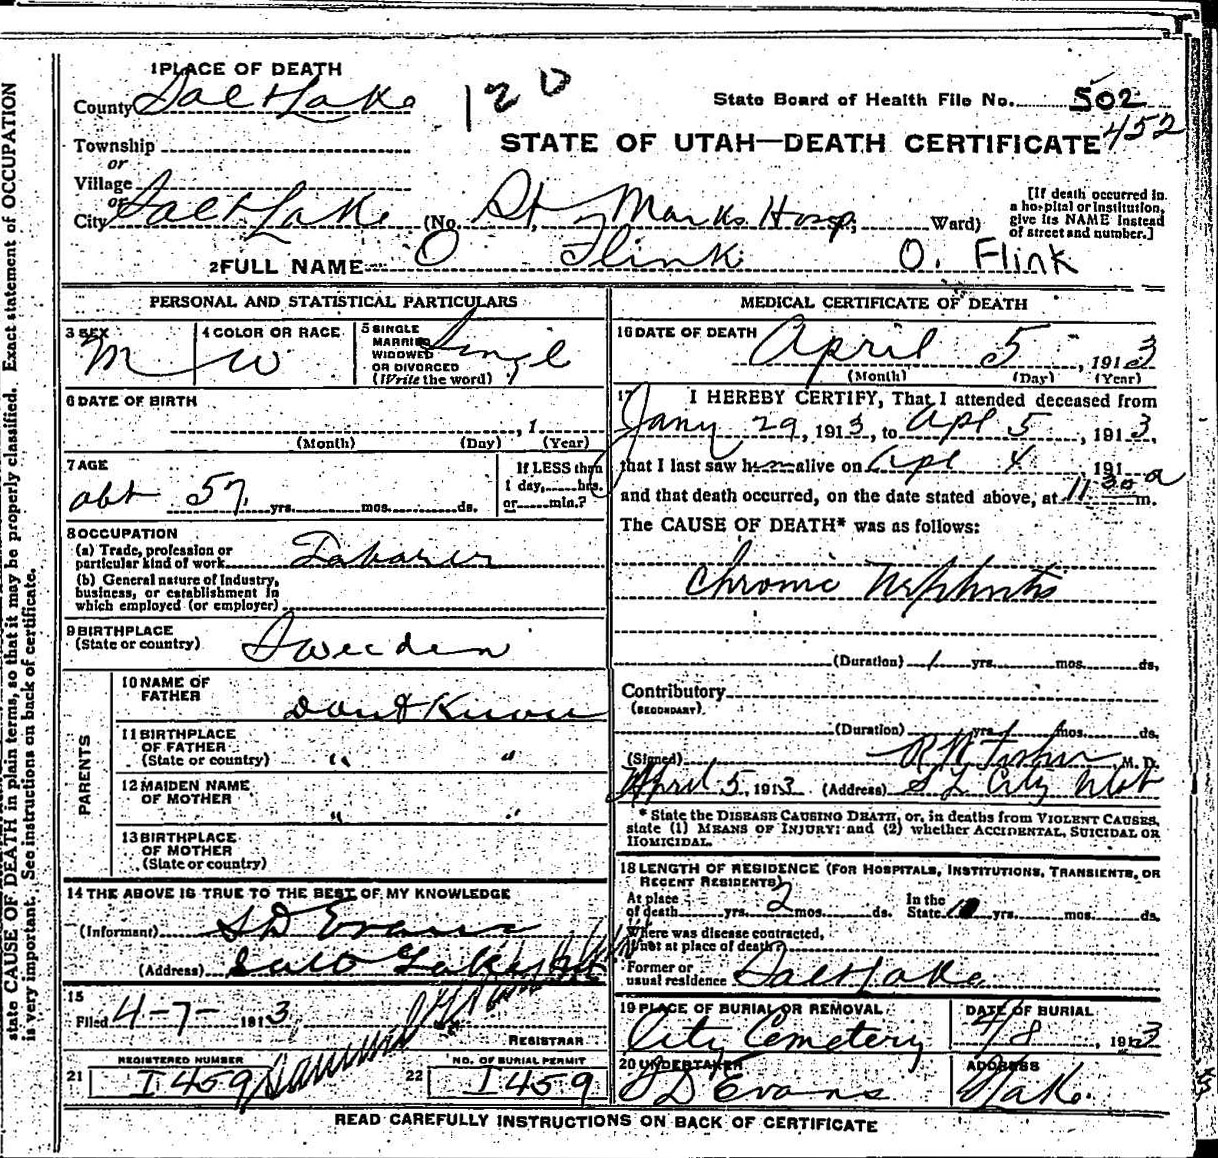 1 PLACE OF DEATH
County Salt Lake
120
State Board of Health File No. 502
452
Township
or
Village
or
City Salt Lake (No. St, Marks Hosp, Ward)
STATE OF UTAH—DEATH CERTIFICATE
[If death occurred in
a hospital or institution,
give its NAME instead
of street and number.]
2 FULL NAME O Flink O. Flink
PERSONAL AND STATISTICAL PARTICULARS
3 SEX M
4 COLOR OR RACE W
5 SINGLE
MARRIED
WIDOWED
OR DIVORCED
(Write the word) Single
6 DATE OF BIRTH
, 1
(Month) (Day) (Year)
7 AGE
abt 57 yrs. mos. ds.
If LESS than
1 day, hrs.
or min.?
8 OCCUPATION
(a) Trade, profession or
particular kind of work Laborer
(b) General nature of Industry,
business, or establishment in
which employed (or employer)
9 BIRTHPLACE
(State or country) Sweeden
PARENTS
10 NAME OF
FATHER Dont Know
11 BIRTHPLACE
OF FATHER
(State or country) " "
12 MAIDEN NAME
OF MOTHER " "
13 BIRTHPLACE
OF MOTHER
(State or country)
14 THE ABOVE IS TRUE TO THE BEST OF MY KNOWLEDGE
(Informant) S D Evans
(Address) Salt Lake
15
Filed 4-7- 1913
REGISTRAR
REGISTERED NUMBER
21 I 459
NO. OF BURIAL PERMIT
22 I 459
MEDICAL CERTIFICATE OF DEATH
16 DATE OF DEATH
April 5, 1913
(Month) (Day) (Year)
17 I HEREBY CERTIFY, That I attended deceased from
Jany 29, 1913, to Apl 5, 1913,
that I last saw h alive on Apl 4, 191
and that death occurred, on the date stated above, at 11 30 a m.
The CAUSE OF DEATH* was as follows:
Chronic Nephritis
(Duration) 1 yrs. mos. ds.
Contributory
(SECONDARY)
(Duration) yrs. mos. ds.
(Signed) M. D.
April 5, 1913 (Address) S L City Utah
* State the DISEASE CAUSING DEATH, or, in deaths from VIOLENT CAUSES,
state (1) MEANS OF INJURY; and (2) whether ACCIDENTAL, SUICIDAL OR
HOMICIDAL.
18 LENGTH OF RESIDENCE (FOR HOSPITALS, INSTITUTIONS, TRANSIENTS, OR
RECENT RESIDENTS)
At place
of death yrs. 2 mos. ds. In the
State yrs. mos. ds.
Where was disease contracted,
if not at place of death?
Former or
usual residence Salt Lake
19 PLACE OF BURIAL OR REMOVAL
City Cemetery
DATE OF BURIAL
4/8, 1913
20 UNDERTAKER
S D Evans
ADDRESS
S Lake
READ CAREFULLY INSTRUCTIONS ON BACK OF CERTIFICATE
state CAUSE OF DEATH in plain terms, so that it may be properly classified. Exact statement of OCCUPATION
is very important. See instructions on back of certificate.